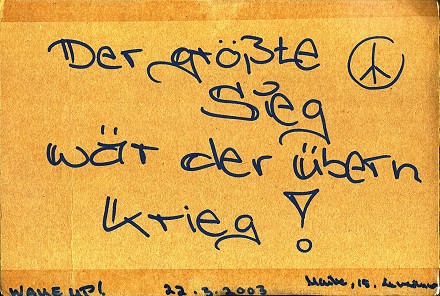 Der größte
Sieg
wär der übern
Krieg!
WAKE UP! 22.3.2003 Maike, 18,